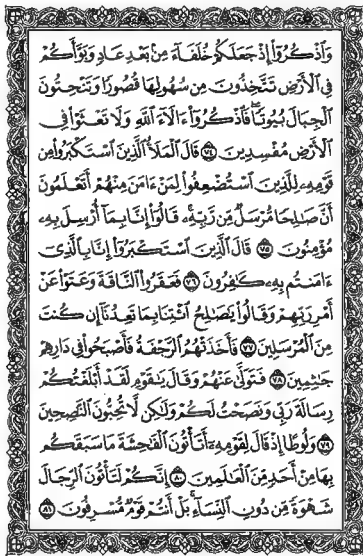 وَٱذۡكُرُوٓاْ إِذۡ جَعَلَكُمۡ خُلَفَآءَ مِنۢ بَعۡدِ عَادٖ وَبَوَّأَكُمۡ
فِي ٱلۡأَرۡضِ تَتَّخِذُونَ مِن سُهُولِهَا قُصُورٗا وَتَنۡحِتُونَ
ٱلۡجِبَالَ بُيُوتٗاۖ فَٱذۡكُرُوٓاْ ءَالَآءَ ٱللَّهِ وَلَا تَعۡثَوۡاْ فِي
ٱلۡأَرۡضِ مُفۡسِدِينَ ٧٤ قَالَ ٱلۡمَلَأُ ٱلَّذِينَ ٱسۡتَكۡبَرُواْ مِن
قَوۡمِهِۦ لِلَّذِينَ ٱسۡتُضۡعِفُواْ لِمَنۡ ءَامَنَ مِنۡهُمۡ أَتَعۡلَمُونَ
أَنَّ صَٰلِحٗا مُّرۡسَلٞ مِّن رَّبِّهِۦۚ قَالُوٓاْ إِنَّا بِمَآ أُرۡسِلَ بِهِۦ
مُؤۡمِنُونَ ٧٥ قَالَ ٱلَّذِينَ ٱسۡتَكۡبَرُوٓاْ إِنَّا بِٱلَّذِيٓ
ءَامَنتُم بِهِۦ كَٰفِرُونَ ٧٦ فَعَقَرُواْ ٱلنَّاقَةَ وَعَتَوۡاْ عَنۡ
أَمۡرِ رَبِّهِمۡ وَقَالُواْ يَٰصَٰلِحُ ٱئۡتِنَا بِمَا تَعِدُنَآ إِن كُنتَ
مِنَ ٱلۡمُرۡسَلِينَ ٧٧ فَأَخَذَتۡهُمُ ٱلرَّجۡفَةُ فَأَصۡبَحُواْ فِي دَارِهِمۡ
جَٰثِمِينَ ٧٨ فَتَوَلَّىٰ عَنۡهُمۡ وَقَالَ يَٰقَوۡمِ لَقَدۡ أَبۡلَغۡتُكُمۡ
رِسَالَةَ رَبِّي وَنَصَحۡتُ لَكُمۡ وَلَٰكِن لَّا تُحِبُّونَ ٱلنَّٰصِحِينَ
٧٩ وَلُوطًا إِذۡ قَالَ لِقَوۡمِهِۦٓ أَتَأۡتُونَ ٱلۡفَٰحِشَةَ مَا سَبَقَكُم
بِهَا مِنۡ أَحَدٖ مِّنَ ٱلۡعَٰلَمِينَ ٨٠ إِنَّكُمۡ لَتَأۡتُونَ ٱلرِّجَالَ
شَهۡوَةٗ مِّن دُونِ ٱلنِّسَآءِۚ بَلۡ أَنتُمۡ قَوۡمٞ مُّسۡرِفُونَ ٨١